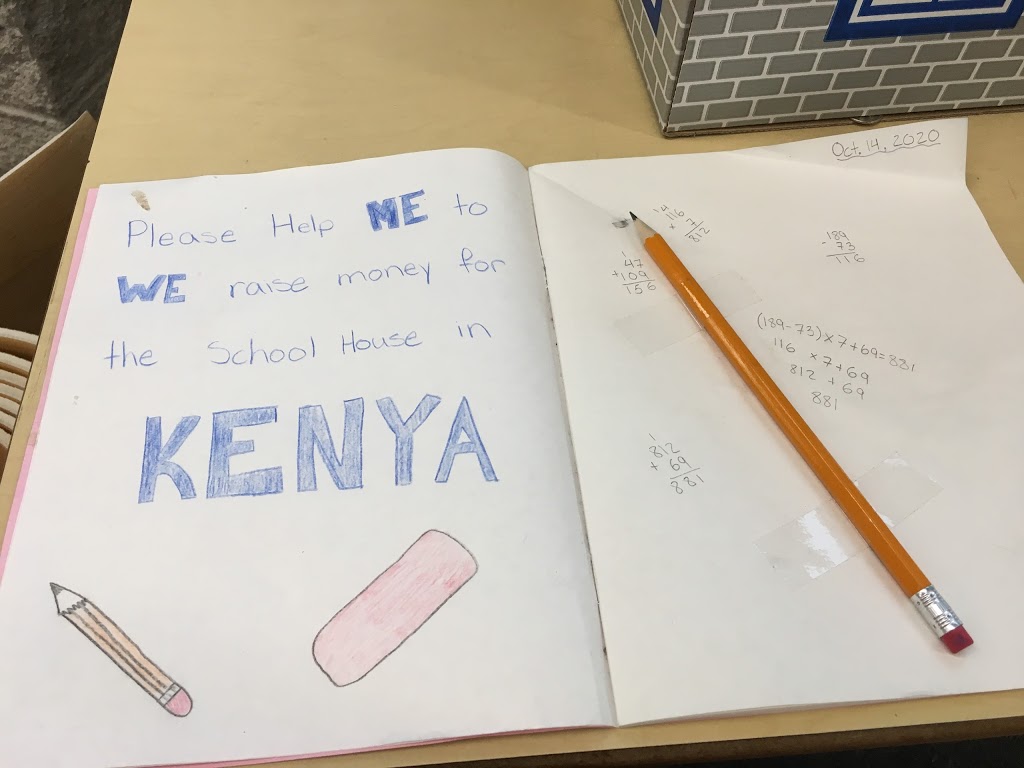 Please Help ME to
WE raise money for
the School House in
KENYA
Oct. 14, 2020
14
116
× 7
812
189
- 73
116
1
47
+109
156
(189-73)×7+69=881
116 ×7+69
812 +69
881
1
812
+ 69
881